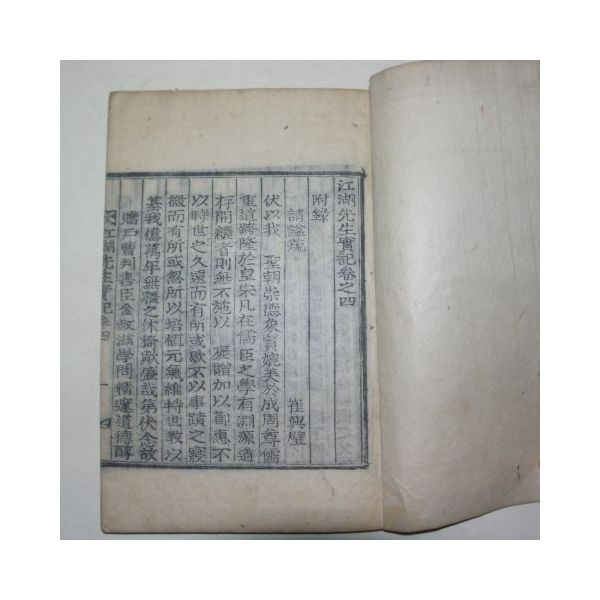 江湖先生實記卷之四
附錄
請謚疏 崔興璧
伏以我 聖朝崇德象賢媲美於成周尊儒
重道跨隆於皇宋凡在儒臣之學有淵源道
存開繼者則無不施以 褒贈加以卹惠不
以時世之久遠而有所或歇不以事蹟之寢
微而有所或忽所以培植元氣維持世敎以
基我億萬年無疆之休猗歟盛哉第伏念故
贈戶曹判書臣金叔滋學問精邃道德醇
江湖先生實記 卷四 一